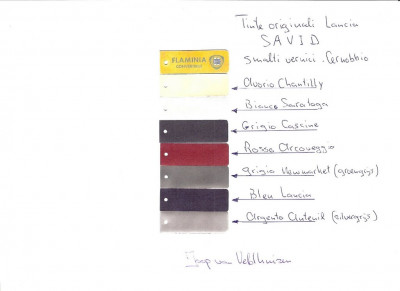 Tinte originali Lancia
SAVID
smalti vernici . Cernobbio
FLAMINIA
Avorio Chantilly
Bianco Saratoga
Grigio Cascine
Rosso Arcoveggio
Grigio Newmarket (groengrijs)
Bleu Lancia
Argento Auteuil (zilvergrijs)
Jaap van Veldhuizen